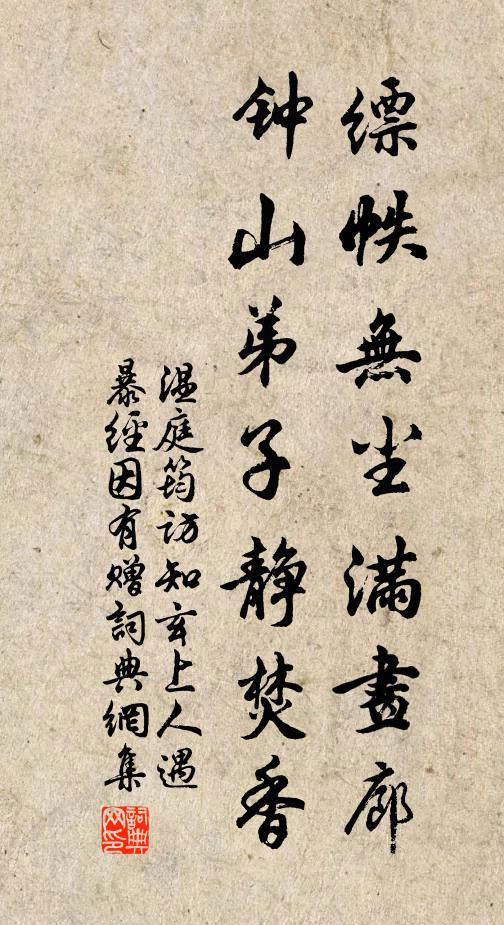 缥帙無尘滿畫廊
钟山弟子静焚香
温庭筠访知玄上人遇
暴經因有赠詞典網集
詞典网印